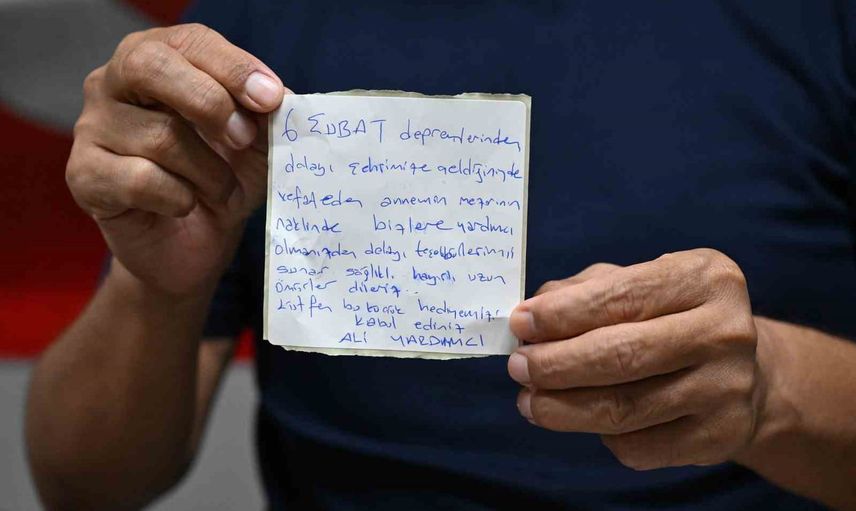 6 ŞUBAT depremlerinden
dolayı şehrimize geldiğinizde
vefat eden annemin mezarının
naklinde bizlere yardımcı
olmanızdan dolayı teşekkürlerimizi
sunar sağlıklı hayırlı uzun
ömürler dileriz...
Lütfen bu küçük hediyemizi
kabul ediniz
ALİ YARDIMCI